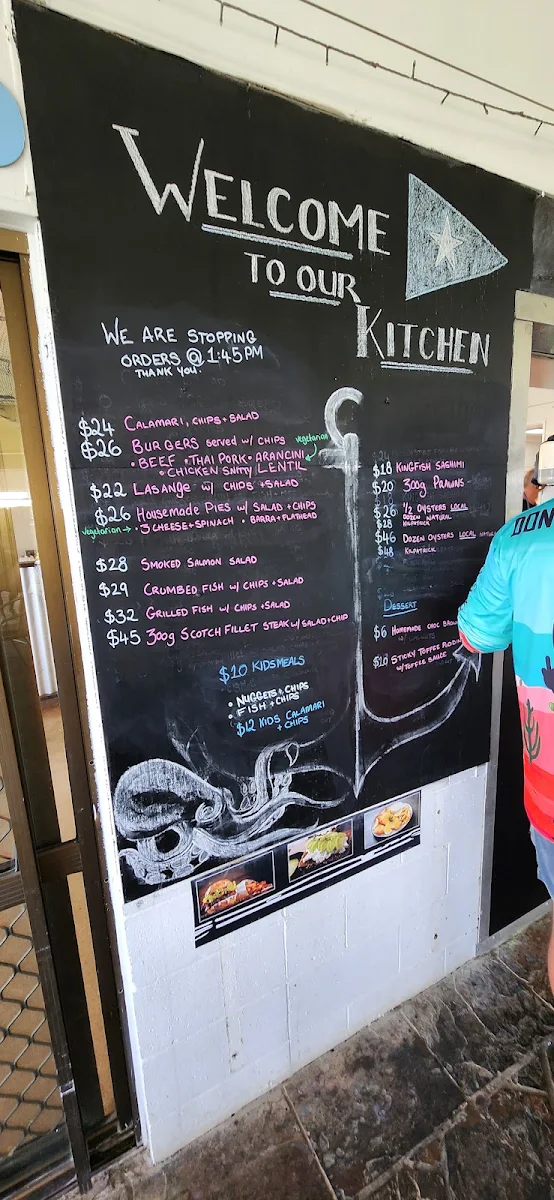 WELCOME
TO OUR
KITCHEN
WE ARE STOPPING
ORDERS @ 1:45PM
THANK YOU
$24 CALAMARI, CHIPS + SALAD
$26 BURGERS served w/ CHIPS
vegetarian
• BEEF • THAI PORK • ARANCINI
• CHICKEN Snitty LENTIL
$22 LASANGE w/ CHIPS + SALAD
$26 HOUSEMADE PIES w/ SALAD + CHIPS
vegetarian → • 3 CHEESE + SPINACH • BARRA + FLATHEAD
$28 SMOKED SALMON SALAD
$29 CRUMBED FISH w/ CHIPS + SALAD
$32 GRILLED FISH w/ CHIPS + SALAD
$45 300g SCOTCH FILLET STEAK w/ SALAD + CHIP
$10 KIDS MEALS
• NUGGETS + CHIPS
• FISH + CHIPS
• $12 KIDS CALAMARI
+ CHIPS
$18 KINGFISH SASHIMI
$20 300g PRAWNS
$26 1/2 OYSTERS LOCAL
DOZEN NATURAL
$28 KILPATRICK
$46 DOZEN OYSTERS LOCAL
$48 KILPATRICK
DESSERT
$6 HOMEMADE CHOC
$10 STICKY TOFFEE
w/ TOFFEE SAUCE
DON